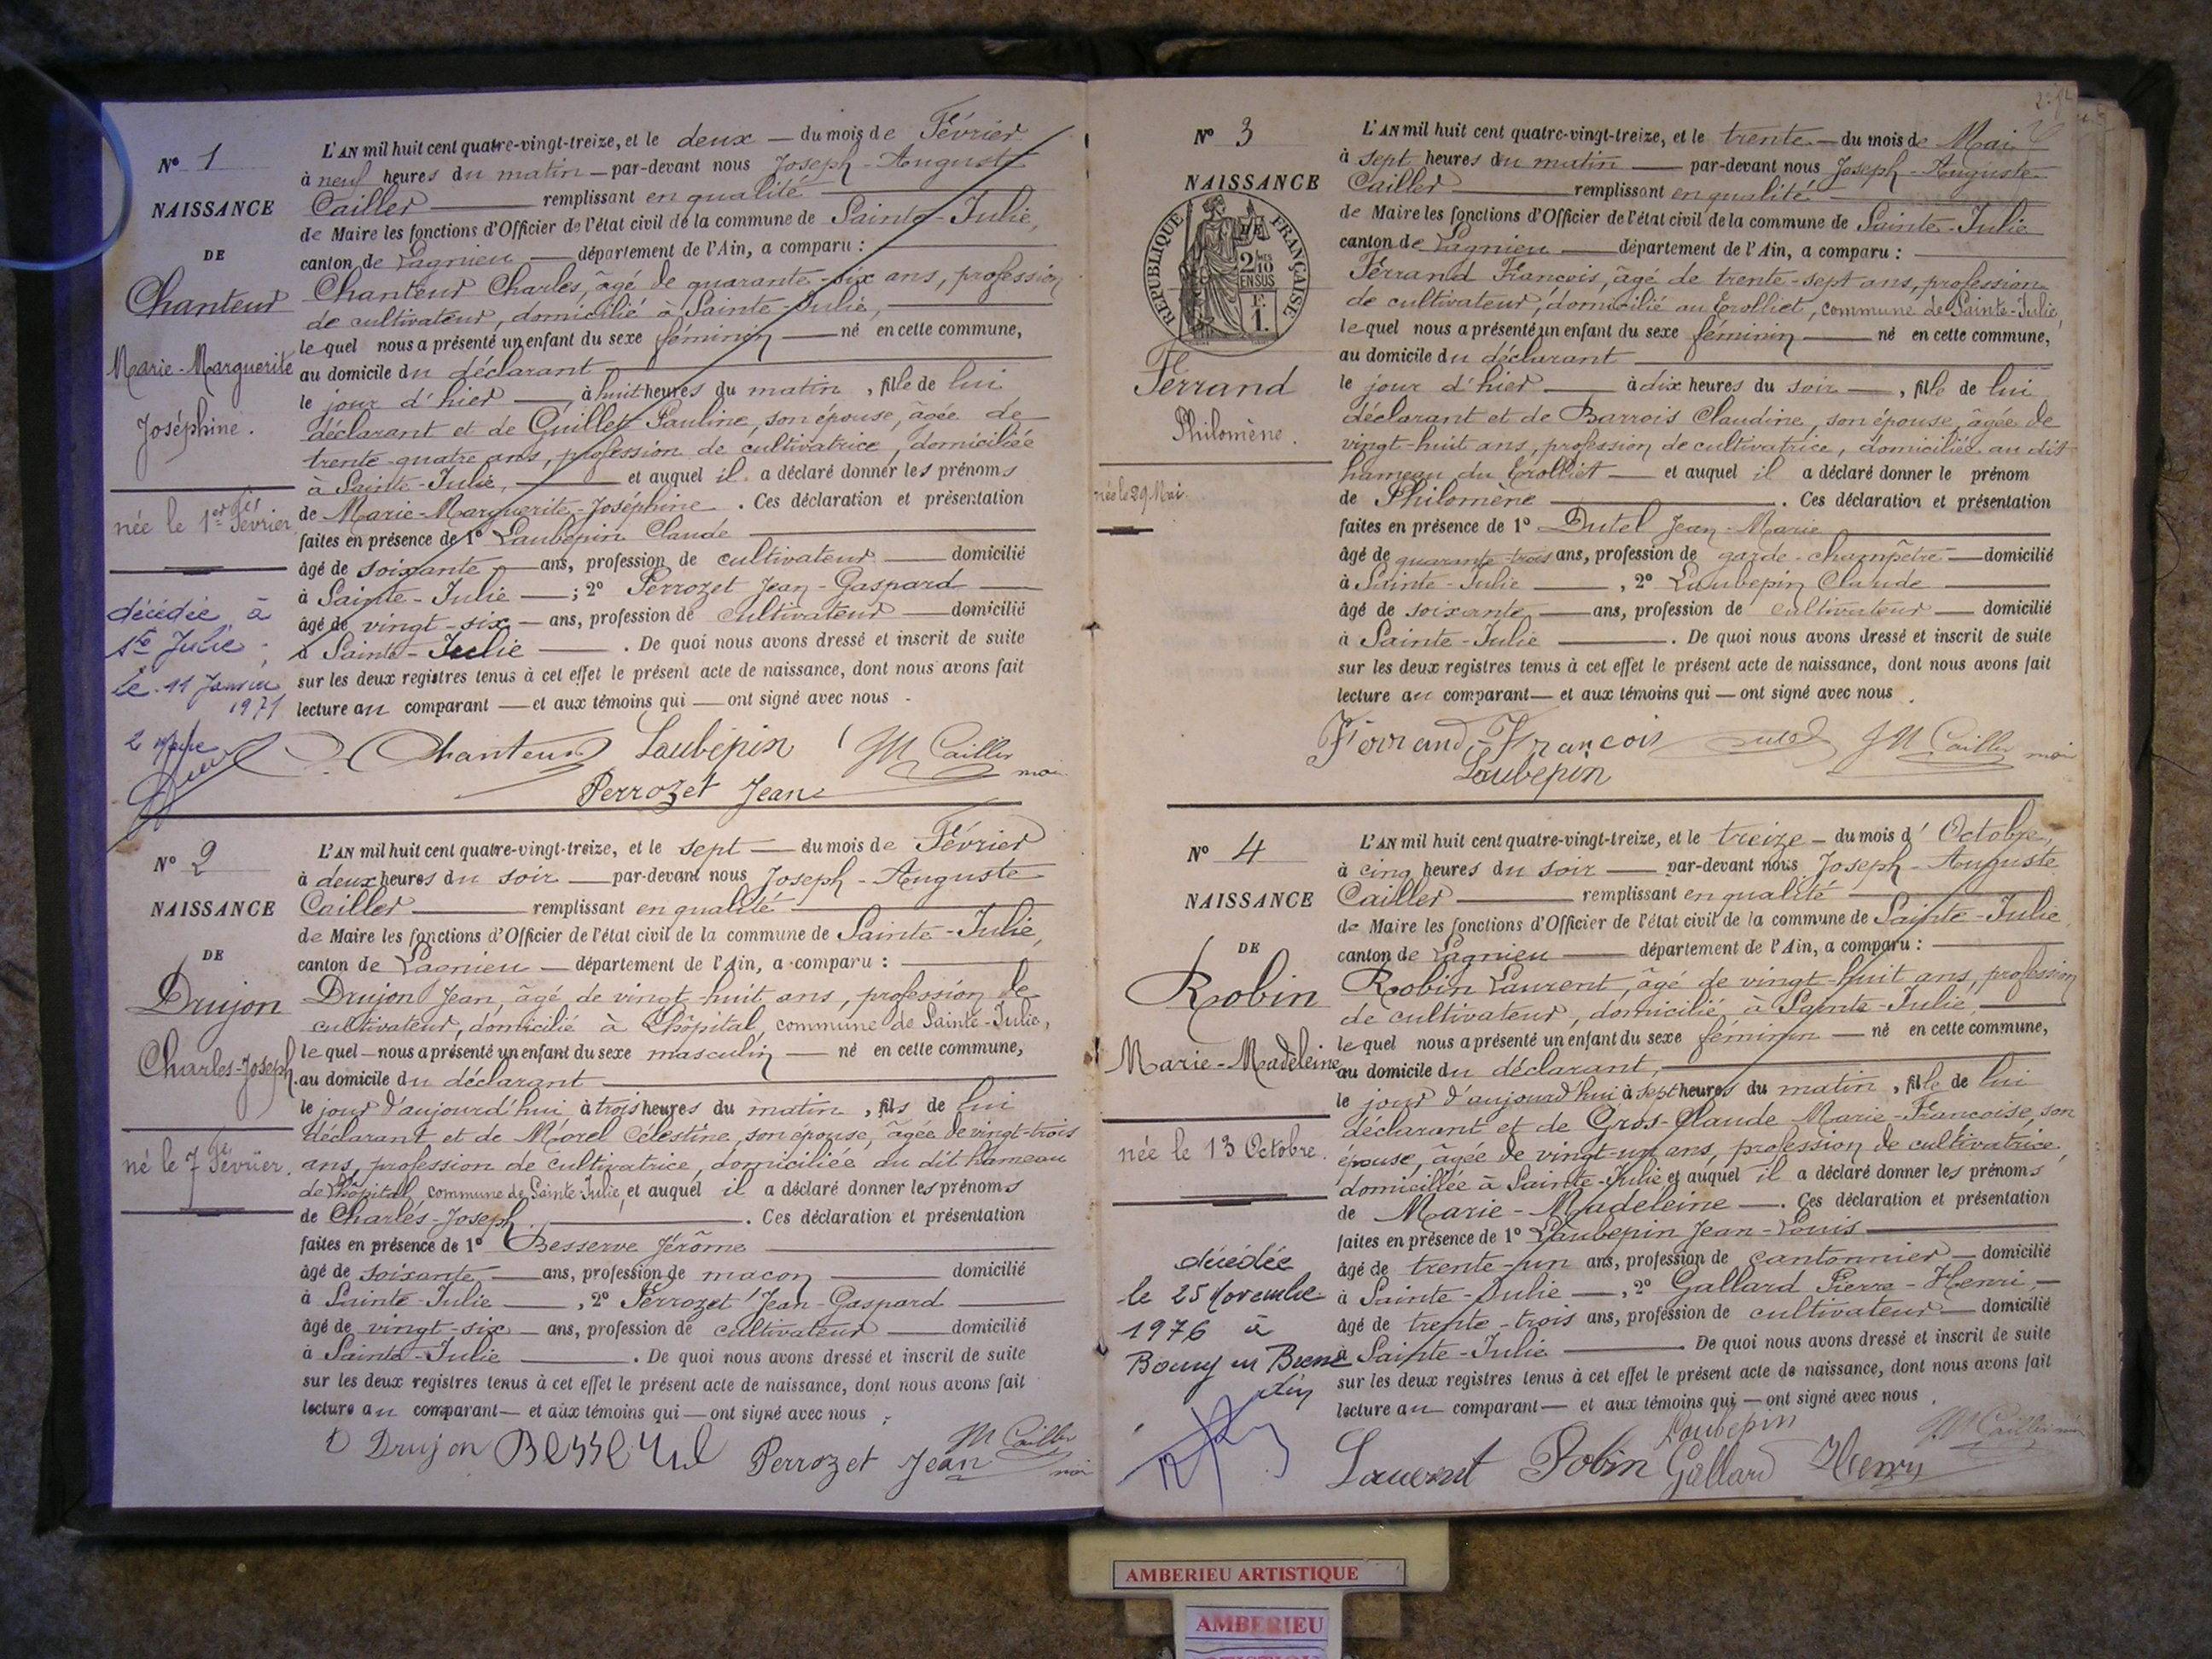 N° 1
NAISSANCE
DE
Chanteur
Marie-Marguerite
Joséphine.
née le 1er Février
décédée à
Ste Julie
le 11 Janvier
1971
L'AN mil huit cent quatre-vingt-treize, et le deux — du mois de Février
à neuf heures du matin — par-devant nous Joseph-Auguste
Cailler — remplissant en qualité
de Maire les fonctions d'Officier de l'état civil de la commune de Sainte-Julie,
canton de Lagnieu — département de l'Ain, a comparu :
Chanteur Charles, âgé de quarante-six ans, profession
de cultivateur, domicilié à Sainte-Julie,
lequel nous a présenté un enfant du sexe féminin — né en cette commune,
au domicile du déclarant
le jour d'hier — à huit heures du matin, fille de lui
déclarant et de Guillet Pauline, son épouse, âgée de
trente-quatre ans, profession de cultivatrice, domiciliée
à Sainte-Julie, — et auquel il a déclaré donner les prénoms
de Marie-Marguerite-Joséphine. Ces déclaration et présentation
faites en présence de 1° Laubepin Claude
âgé de soixante — ans, profession de cultivateur — domicilié
à Sainte-Julie — ; 2° Perrozet Jean-Gaspard
âgé de vingt-six — ans, profession de cultivateur — domicilié
à Sainte-Julie — . De quoi nous avons dressé et inscrit de suite
sur les deux registres tenus à cet effet le présent acte de naissance, dont nous avons fait
lecture au comparant — et aux témoins qui — ont signé avec nous.
Chanteur Laubepin Cailler
Perrozet Jean
N° 2
NAISSANCE
DE
Drujon
Charles-Joseph.
né le 7 Février.
L'AN mil huit cent quatre-vingt-treize, et le sept — du mois de Février
à deux heures du soir — par-devant nous Joseph-Auguste
Cailler — remplissant en qualité
de Maire les fonctions d'Officier de l'état civil de la commune de Sainte-Julie,
canton de Lagnieu — département de l'Ain, a comparu :
Drujon Jean, âgé de vingt-huit ans, profession de
cultivateur, domicilié à l'hôpital, commune de Sainte-Julie,
lequel — nous a présenté un enfant du sexe masculin — né en cette commune,
au domicile du déclarant
le jour d'aujourd'hui à trois heures du matin, fils de lui
déclarant et de Morel Célestine, son épouse, âgée de vingt-trois
ans, profession de cultivatrice, domiciliée au dit hameau
de l'hôpital, commune de Sainte Julie, et auquel il a déclaré donner les prénoms
de Charles-Joseph. — . Ces déclaration et présentation
faites en présence de 1° Besserve Jérôme
âgé de soixante — ans, profession de maçon — domicilié
à Sainte-Julie — , 2° Perrozet Jean-Gaspard
âgé de vingt-six — ans, profession de cultivateur — domicilié
à Sainte-Julie — . De quoi nous avons dressé et inscrit de suite
sur les deux registres tenus à cet effet le présent acte de naissance, dont nous avons fait
lecture au comparant — et aux témoins qui — ont signé avec nous.
Drujon Perrozet Jean Cailler
N° 3
NAISSANCE
RÉPUBLIQUE FRANÇAISE
DE
2/10
EN SUS
F.
1.
Ferrand
Philomène.
née le 29 Mai.
L'AN mil huit cent quatre-vingt-treize, et le trente — du mois de Mai
à sept heures du matin — par-devant nous Joseph-Auguste
Cailler — remplissant en qualité
de Maire les fonctions d'Officier de l'état civil de la commune de Sainte-Julie
canton de Lagnieu — département de l'Ain, a comparu :
Ferrand François, âgé de trente-sept ans, profession
de cultivateur, domicilié au Trolliet, commune de Sainte-Julie,
lequel nous a présenté un enfant du sexe féminin — né en cette commune,
au domicile du déclarant
le jour d'hier — à dix heures du soir — , fille de lui
déclarant et de Barrois Claudine, son épouse, âgée de
vingt-huit ans, profession de cultivatrice, domiciliée au dit
hameau du Trolliet — et auquel il a déclaré donner le prénom
de Philomène — . Ces déclaration et présentation
faites en présence de 1° Dutel Jean-Marie
âgé de quarante-trois ans, profession de garde-champêtre — domicilié
à Sainte-Julie — , 2° Laubepin Claude
âgé de soixante — ans, profession de cultivateur — domicilié
à Sainte-Julie — . De quoi nous avons dressé et inscrit de suite
sur les deux registres tenus à cet effet le présent acte de naissance, dont nous avons fait
lecture au comparant — et aux témoins qui — ont signé avec nous.
Ferrand François Dutel Cailler
Laubepin
N° 4
NAISSANCE
DE
Robin
Marie-Madeleine
née le 13 Octobre.
décédée
le 25 Novembre
1976 à
Bourg en Bresse
Ain
L'AN mil huit cent quatre-vingt-treize, et le treize — du mois d'Octobre,
à cinq heures du soir — par-devant nous Joseph-Auguste
Cailler — remplissant en qualité
de Maire les fonctions d'Officier de l'état civil de la commune de Sainte-Julie
canton de Lagnieu — département de l'Ain, a comparu :
Robin Laurent, âgé de vingt-huit ans, profession
de cultivateur, domicilié à Sainte-Julie,
lequel nous a présenté un enfant du sexe féminin — né en cette commune,
au domicile du déclarant,
le jour d'aujourd'hui à sept heures du matin, fille de lui
déclarant et de Gros-Claude Marie-Françoise, son
épouse, âgée de vingt-un ans, profession de cultivatrice,
domiciliée à Sainte-Julie et auquel il a déclaré donner les prénoms
de Marie-Madeleine — . Ces déclaration et présentation
faites en présence de 1° Laubepin Jean-Louis
âgé de trente-un ans, profession de cantonnier — domicilié
à Sainte-Julie — , 2° Gallard Pierre-Henri —
âgé de trente-trois ans, profession de cultivateur — domicilié
à Sainte-Julie — De quoi nous avons dressé et inscrit de suite
sur les deux registres tenus à cet effet le présent acte de naissance, dont nous avons fait
lecture au comparant — et aux témoins qui — ont signé avec nous.
Laubepin Cailler
Laurent Robin Gallard Henry
AMBERIEU ARTISTIQUE
AMBERIEU